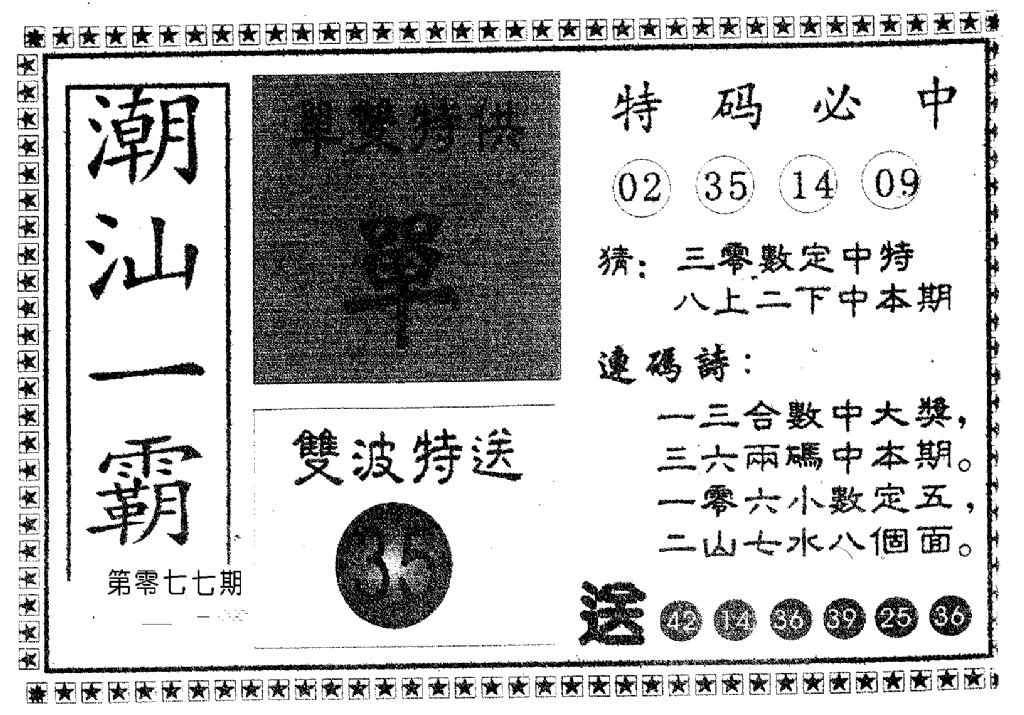 潮汕一霸
第零七七期
單雙特供
單
雙波特送
35
特码必中
02 35 14 09
猜：三零數定中特
八上二下中本期
連碼詩：
一三合數中大獎，
三六兩碼中本期。
一零六小數定五，
二山七水八個面。
送 42 14 36 39 25 36